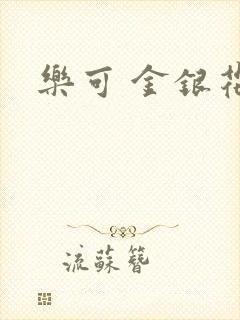 樂可 金銀花
流蘇簪